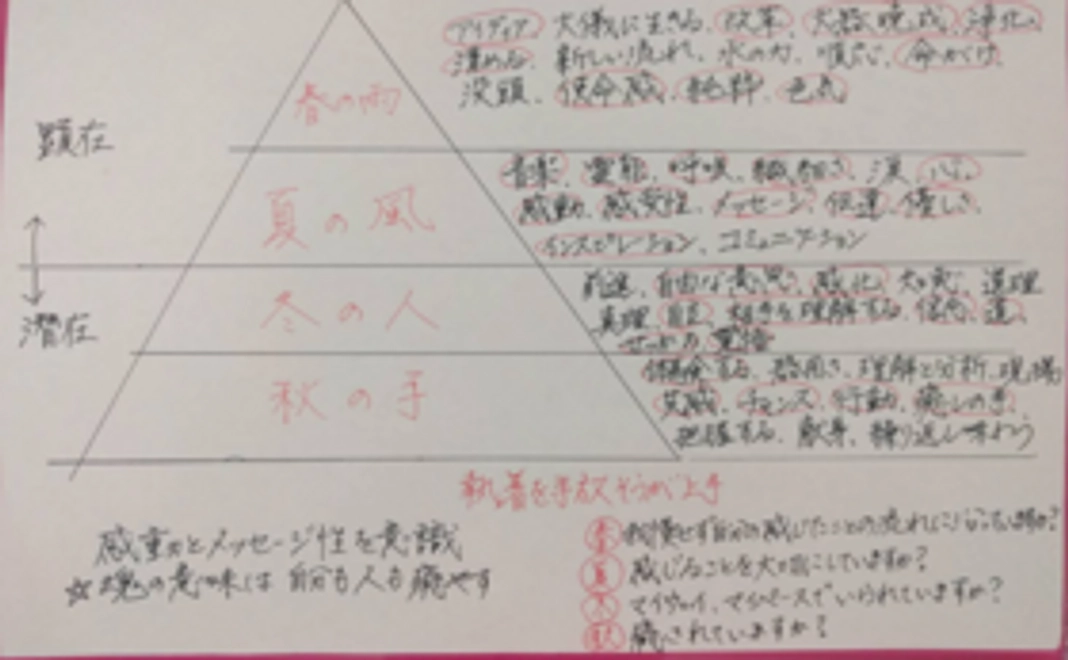 アイディア 大儀に生きる、改革、大器晩成、浄化、
清める、新しい流れ、水の力、順応、命がけ、
没頭、使命感、純粋、色気
春の雨
顕在
音楽、芸能、呼吸、繊細さ、涙、心、
感動、感受性、メッセージ、伝達、優しさ、
インスピレーション、コミュニケーション
夏の風
前進、自由な意思、感化、道理
真理、自立、相手を理解する、信念、道、
冬の人
潜在
体験する、器用さ、理解と分析、現場
共感、チャンス、行動、癒しの手、
把握する、献身、繰り返し味わう
秋の手
執着を手放すのが上手
感動とメッセージ性を意識
☆魂の意味は 自分も人も癒やす
春 我慢せず自分の感じたことの流れに
夏 感じることを大切にしていますか?
冬 マイウェイ、マイペースでいられていますか?
秋 癒されていますか?